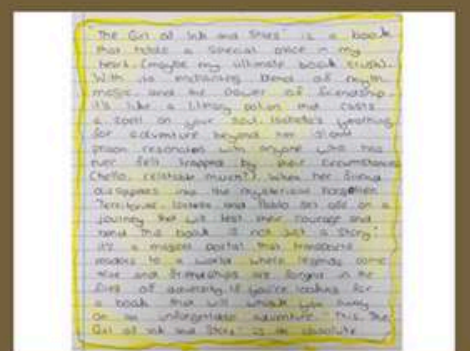 "The Girl of Ink and Stars" is a book
that holds a special place in my
heart. (maybe my ultimate book crush).
With its enchanting blend of myth,
magic, and the power of friendship,
it's like a literary potion that casts
a spell on your soul. Isabella's yearning
for adventure beyond her island
prison resonates with anyone who has
ever felt trapped by their circumstances
(hello, relatable much?). When her friend
disappears into the mysterious Forgotten
Territories, and Pablo set off on a
journey that will test their courage and
bond. This book is not just a story;
it's a magical portal that transports
readers to a world where legends come
alive and friendships are forged in the
fires of adversity. If you're looking for
a book that will whisk you away
on an unforgettable adventure, "The
Girl of Ink and Stars" is an absolute